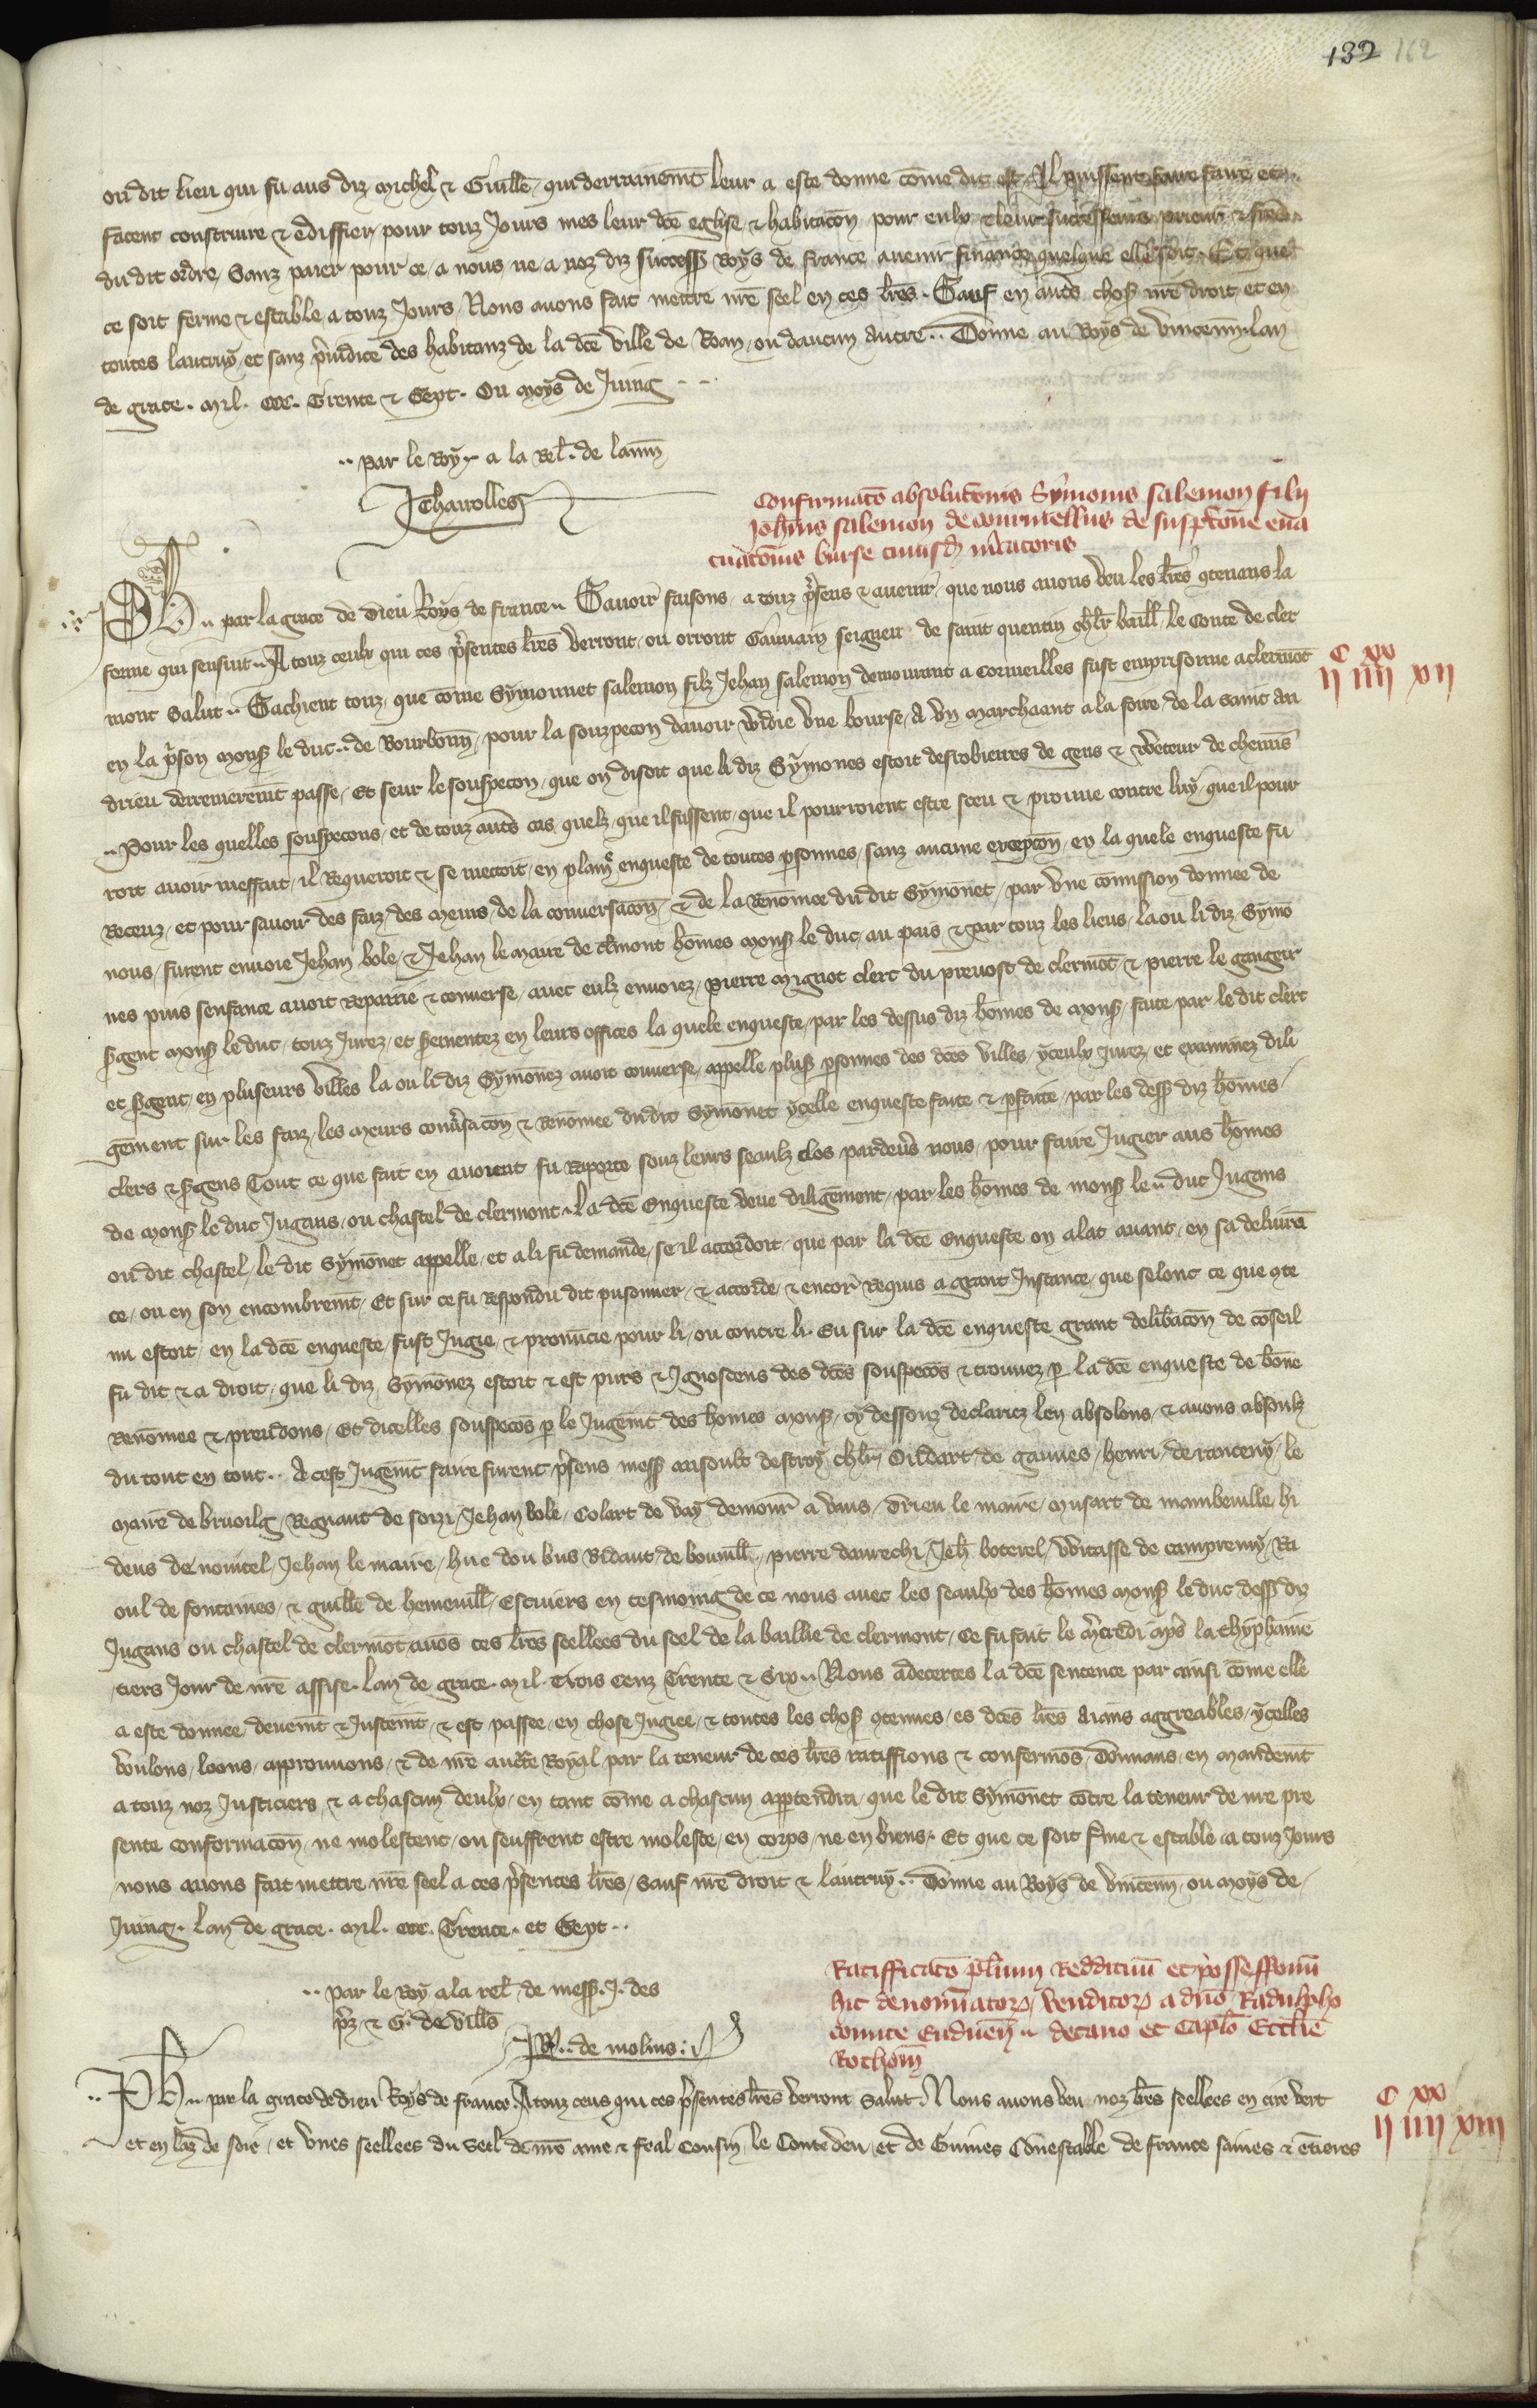 132 162
ou dit lieu qui fu aus diz Michel & Guillē, qui derrainemt leur a este donne cōme dit est. Il puissent faire faire et
facent construire & ediffier pour touz Jours mes leur dcē eglise & habitacōn pour eulx & leur successeurs prieur & freres
du dit ordre, Sanz paier pour ce, a nous ne a noz diz success Roys de france avenir finance quelque elle soit. Et que
ce soit ferme & estable a touz Jours, Nous avons fait mettre nrē seel en ces lrēs. Sauf en autēs chos nrē droit, et en
toutes lautruy, et sanz p̄iudice des habitanz de la dcē ville de Roan, ou daucun autre.. Donne au Boys de Vincenn, lan
de grace. Mil. CCC. Trente & Sept. Ou Moys de Juing
.. par le Roy. a la Rel. de laum̄
J Charrolles
Confirmatō absolutōnis Symonis Salemon filii
Joh̄nis Salemon de cormellius de suspitōne eua
cuatōnis burse cuiusd mercatoris
Ph.. par la grace de Dieu Roys de france.. Savoir faisons, a touz p̄sens & avenir, que nous avons veu les lrēs 9tenans la
forme qui sensuit.. A touz ceulx qui ces p̄sentes lrēs verront, ou orront Gauvain seigneur de saint quentin ch̄lr baill. le Conte de cler
mont Salut.. Sachient touz, que cōme Symonnet salemon filz Jehan salemon demourant a Cormeilles fust emprisonne a clermōt
C XX
II IIII XII
en la p̄son Mons le duc.. de Bourbonn, pour la souzpecon davoir widie une bourse, A un marchaant a la foire de la saint an
drieu derreneremt passe, Et seur le souspecon, que on disoit que li diz Symones estoit desrobierres de gens & gueteur de chemins
.. Pour les quelles souspecons, et de touz autēs cas quelz que il fussent, que il pourroient estre sceu & prouve contre luy, que il pour
roit avoir meffait, il Requeroit & se mettoit, en plain enqueste de toutes psonnes, sanz aucune excepcōn, en la quele enqueste fu
Receuz, et pour savoir des faiz, des Meurs, de la conversacōn, & de la Renōmee du dit Symōnet, par une cōmission donnee de
nous, furent envoie Jehan bole, & Jehan le maire de cl̄mont hōmes Mons le duc, au pais & par touz les lieus, la ou li diz Symō
nes puis senfance avoit Repairie & converse, avec eulz envoiez, pierre Mignot clerc du prevost de clermōt, & pierre le gangeur
s̄gent Mons le duc, touz Jurez, et s̄ementez en leurs offices la quele enqueste, par les dessus diz hōmes de Mons, faite par le dit clerc
et s̄gent, en pluseurs Villes la ou li diz Symōnez avoit converse, appelle plus psonnes des dcēs villes, yceulx Jurez, et examinez dili
gēment sur les faiz, les Meurs conv̄sacōn & Renōmee du dit Symōnet ycelle enqueste faite & pfaitte, par les dess diz hōmes,
clers & s̄gens Tout ce que fait en avoient fu Raporte souz leurs seaulz clos pardev̄s nous, pour faire Jugier aus hōmes
de Mons le duc Jugans, ou chastel de clermont. La dcē Enqueste veue diligēment, par les hōmes de mons le.. duc Jugans
ou dit chastel, le dit Symōnet appelle, et a li fu demande, se il accordoit, que par la dcē Enqueste on alat avant, en sa delivrā
ce, ou en son encombremt, Et sur ce fu Respondu dit prisonnier, & accorde, & encor̄ Requis a grant Instance, que selonc ce que 9te
nu estoit en la dcē enqueste, fust Jugie, & pronūcie, pour li, ou contre li. Eu sur la dcē enqueste grant delib̄acōn de cōseil
fu dit & a droit, que li diz Symōnez estoit & est purs & Ignoscens des dcēs souspecōs & trouvez p la dcē enqueste de bōne
Renōmee & preudons, Et dicelles souspecōs p le Jugemt des hōmes Mons, cy dessouz declariez len absolons, & avons absoulz
du tout en tout.. A cest Jugemt faire furent p̄sens mess ansoult destroy ch̄lr, Oildart de gannes, henri de ranteny, le
maire de bruoilg, Regnaut de soizi, Jehan bole, Colart de Vay demour̄ a Vaus, Drieu le maire, Musart de maimbeville, hi
deus de nointel, Jehan le maire, hue dou bus, Bidaut de bouvill, pierre daurechi, Jeh̄ boterel, witasse de campremy, Ra
oul de fontaines, & guillē de hemevill, Escuiers en tesmoing de ce nous avec les seaulx des hōmes Mons le duc dess diz
Jugans ou chastel de clermōt avōs ces lrēs seellees du seel de la baillie de clermont, Ce fu fait le m̄credi ap̄s la thyphanie
tiers Jour de nrē assise, lan de grace. Mil. Trois Cenz Trente & Six.. Nous adecertes la dcē sentence par ainsi cōme elle
a este donnee, deuemt & Justemt, & est passee, en chose Jugiee, & toutes les chos 9tenues, es dcēs lrēs aians aggreables, ycelles
voulons, loons, approuvons, & de nrē auctē Royal par la teneur de ces lrēs ratiffions & confermōs, Donnans, en Mandemt
a touz noz Justiciers, & a chascun deulx, en tant cōme a chascun appartendra, que le dit Symōnet cōtre la teneur de nrē pre
sente confirmacōn, ne molestent, ou seuffrent estre moleste, en corps, ne en biens. Et que ce soit f̄me & estable a touz Jours
nous avons fait mettre nrē seel a ces p̄sentes lrēs, sauf nrē droit & lautruy.. Donne au Boys de Vincenn, ou Moys de
Juing. Lan de grace. Mil. CCC. Trente. et Sept..
.. par le Roy a la rel. de mess. J. des
p̄z & G. de Vill̄s
P. de molins:
Ratifficatō plurium Reddituū et possessionū
hic denominator, venditor a dn̄o Radulpho
comite Augi.. decano et Caplō Ecclīe
Rothom̄
Ph.. par la grace de dieu Roys de france. A touz ceus qui ces p̄sentes lrēs verront, Salut. Nous avons veu noz lrēs seellees en cire vert
et en laz de soie, et unes seellees du seel de nrē ame & feal Cousin, le Conte deu, et de Guines Cōnestable de france saines & ētieres
C XX
II IIII XIII